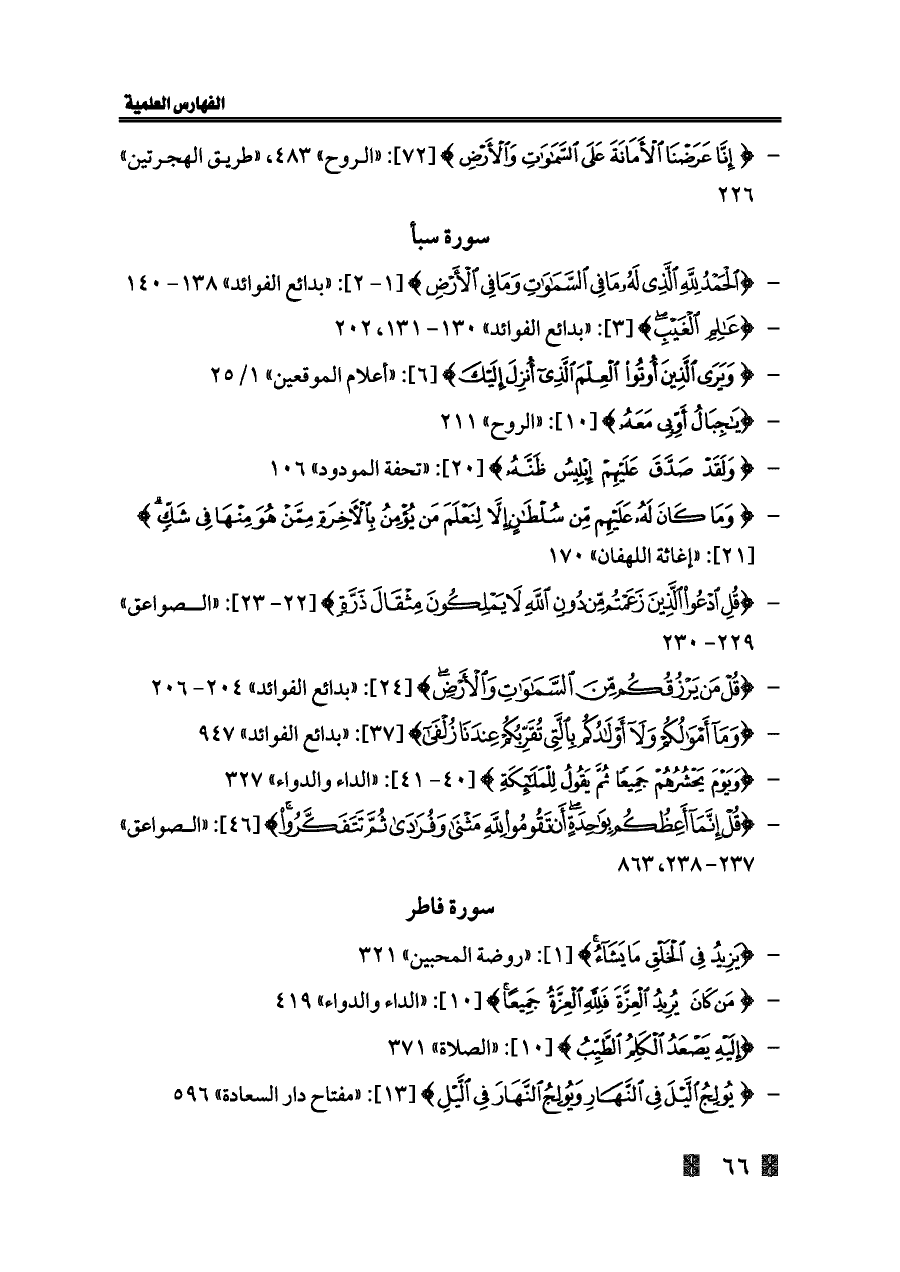 الفهارس العلمية
- ﴿ إِنَّا عَرَضْنَا ٱلْأَمَانَةَ عَلَى ٱلسَّمَٰوَٰتِ وَٱلْأَرْضِ ﴾ [٧٢]: «الـروح» ٤٨٣، «طريـق الهجـرتين»
٢٢٦
سورة سبأ
- ﴿ٱلْحَمْدُ لِلَّهِ ٱلَّذِى لَهُۥ مَا فِى ٱلسَّمَٰوَٰتِ وَمَا فِى ٱلْأَرْضِ ﴾ [١ - ٢]: «بدائع الفوائد» ١٣٨ - ١٤٠
- ﴿عَٰلِمِ ٱلْغَيْبِۖ﴾ [٣]: «بدائع الفوائد» ١٣٠ - ١٣١، ٢٠٢
- ﴿ وَيَرَى ٱلَّذِينَ أُوتُوا۟ ٱلْعِلْمَ ٱلَّذِىٓ أُنزِلَ إِلَيْكَ ﴾ [٦]: «أعلام الموقعين» ١/ ٢٥
- ﴿يَٰجِبَالُ أَوِّبِى مَعَهُۥ ﴾ [١٠]: «الروح» ٢١١
- ﴿ وَلَقَدْ صَدَّقَ عَلَيْهِمْ إِبْلِيسُ ظَنَّهُۥ ﴾ [٢٠]: «تحفة المودود» ١٠٦
- ﴿ وَمَا كَانَ لَهُۥ عَلَيْهِم مِّن سُلْطَٰنٍ إِلَّا لِنَعْلَمَ مَن يُؤْمِنُ بِٱلْءَاخِرَةِ مِمَّنْ هُوَ مِنْهَا فِى شَكٍّۗ ﴾
[٢١]: «إغاثة اللهفان» ١٧٠
- ﴿قُلِ ٱدْعُوا۟ ٱلَّذِينَ زَعَمْتُم مِّن دُونِ ٱللَّهِ لَا يَمْلِكُونَ مِثْقَالَ ذَرَّةٍ ﴾ [٢٢ - ٢٣]: «الـصواعق»
٢٢٩ - ٢٣٠
- ﴿قُلْ مَن يَرْزُقُكُم مِّنَ ٱلسَّمَٰوَٰتِ وَٱلْأَرْضِۖ ﴾ [٢٤]: «بدائع الفوائد» ٢٠٤ - ٢٠٦
- ﴿وَمَآ أَمْوَٰلُكُمْ وَلَآ أَوْلَٰدُكُم بِٱلَّتِى تُقَرِّبُكُمْ عِندَنَا زُلْفَىٰٓ﴾ [٣٧]: «بدائع الفوائد» ٩٤٧
- ﴿وَيَوْمَ يَحْشُرُهُمْ جَمِيعًا ثُمَّ يَقُولُ لِلْمَلَٰٓئِكَةِ ﴾ [٤٠ - ٤١]: «الداء والدواء» ٣٢٧
- ﴿قُلْ إِنَّمَآ أَعِظُكُم بِوَٰحِدَةٍۖ أَن تَقُومُوا۟ لِلَّهِ مَثْنَىٰ وَفُرَٰدَىٰ ثُمَّ تَتَفَكَّرُوا۟ۚ﴾ [٤٦]: «الـصواعق»
٢٣٧ - ٢٣٨، ٨٦٣
سورة فاطر
- ﴿يَزِيدُ فِى ٱلْخَلْقِ مَا يَشَآءُۚ﴾ [١]: «روضة المحبين» ٣٢١
- ﴿ مَن كَانَ يُرِيدُ ٱلْعِزَّةَ فَلِلَّهِ ٱلْعِزَّةُ جَمِيعًاۚ﴾ [١٠]: «الداء والدواء» ٤١٩
- ﴿إِلَيْهِ يَصْعَدُ ٱلْكَلِمُ ٱلطَّيِّبُ ﴾ [١٠]: «الصلاة» ٣٧١
- ﴿ يُولِجُ ٱلَّيْلَ فِى ٱلنَّهَارِ وَيُولِجُ ٱلنَّهَارَ فِى ٱلَّيْلِ ﴾ [١٣]: «مفتاح دار السعادة» ٥٩٦
٦٦